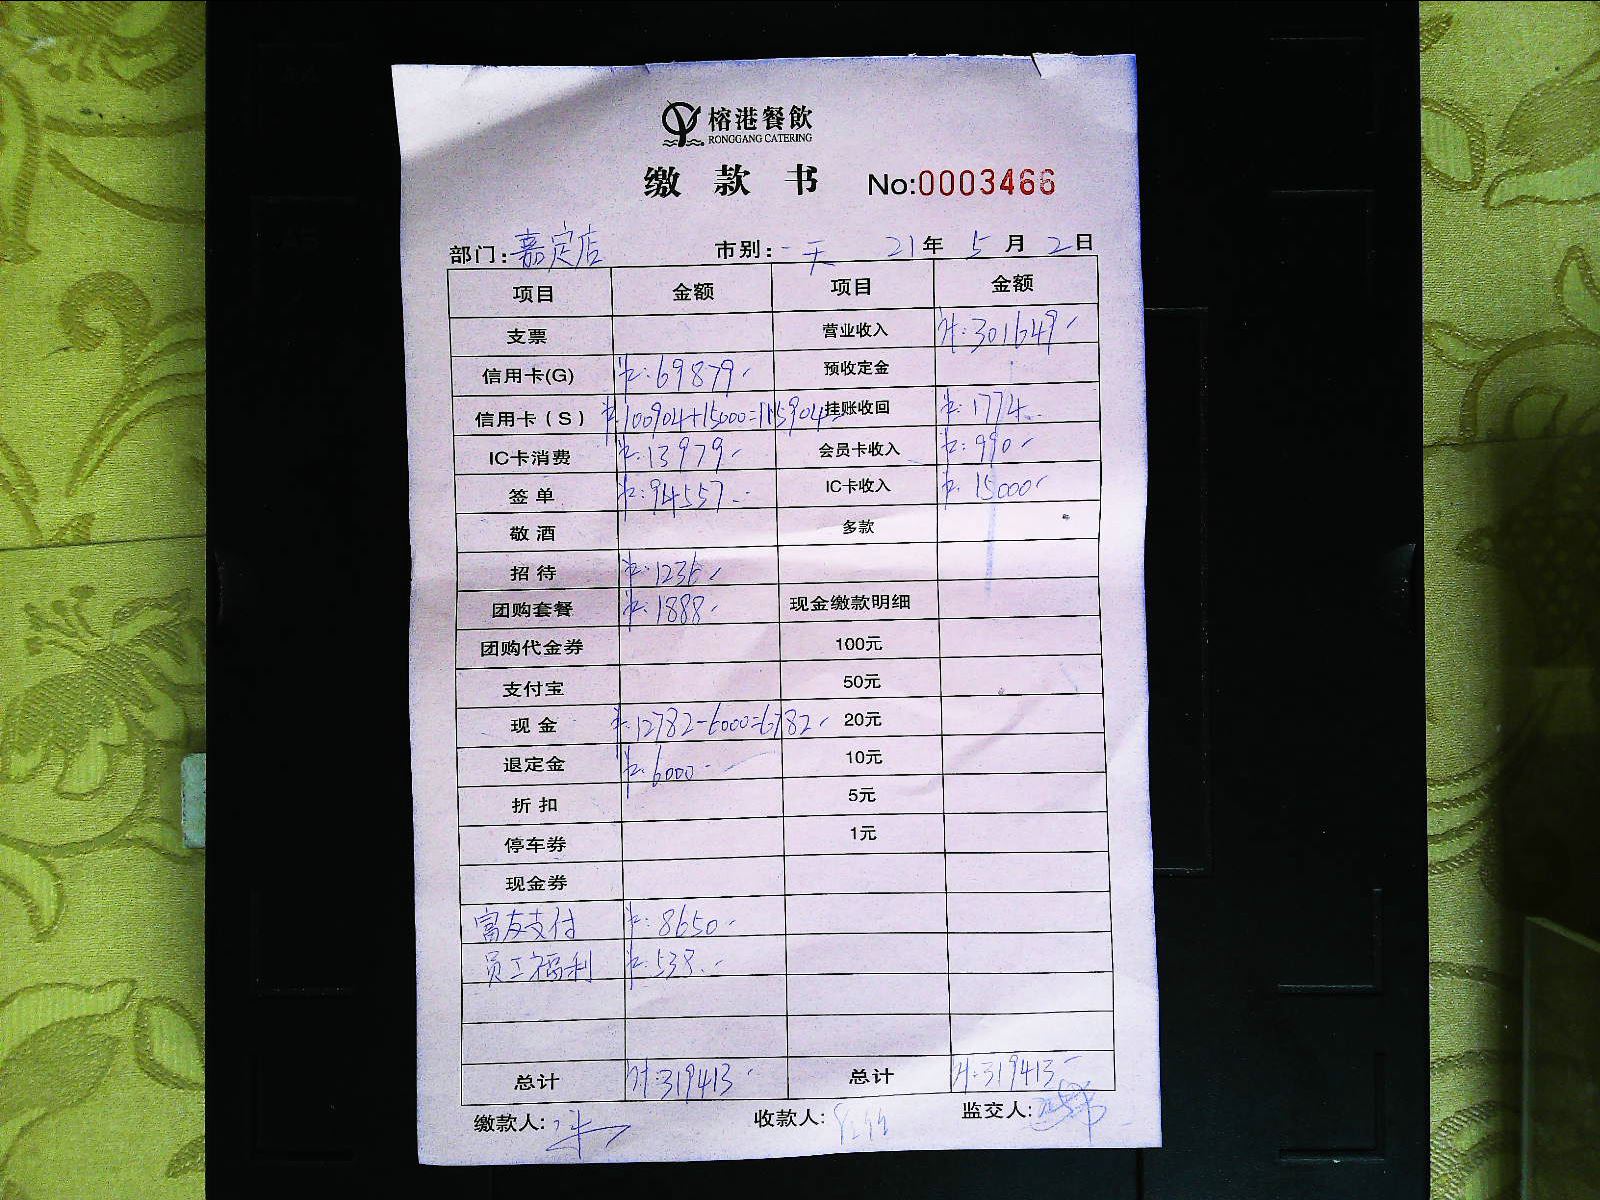 榕港餐飲
RONGGANG CATERING
缴款书 No:0003466
部门:嘉定店 市别:一天 21年5月2日
项目 金额 项目 金额
支票 营业收入 计:301649
信用卡(G) ¥:69879 预收定金
信用卡(S) ¥:100904+15000=115904 挂账收回 ¥:1774
IC卡消费 ¥:13979 会员卡收入 ¥:990
签单 ¥:94557 IC卡收入 ¥:15000
敬酒 多款
招待 ¥:1236
团购套餐 ¥:1888 现金缴款明细
团购代金券 100元
支付宝 50元
现金 ¥:12782-6000=6782 20元
退定金 ¥:6000 10元
折扣 5元
停车券 1元
现金券
富友支付 ¥:8650
员工福利 ¥:538
总计 计:319413 总计 计:319413
缴款人: 收款人: 监交人: